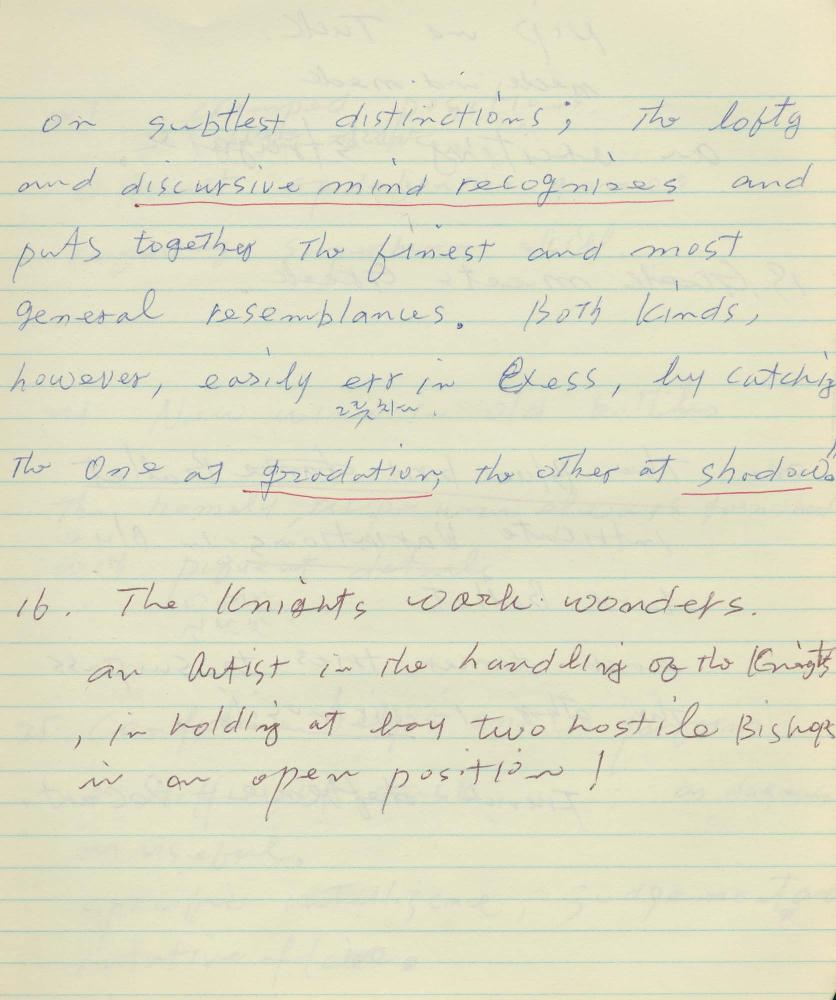 on subtlest distinctions; The lofty
and discursive mind recognizes and
puts together the finest and most
general resemblances. Both kinds,
however, easily err in Exess, by catching
그릇치다.
The One at gradation, the other at shadow."
16. The Knights work wonders.
an Artist in the handling of the Knights
, in holding at bay two hostile Bishops
in an open position!